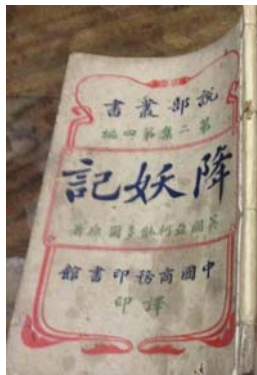 說部叢書
第二集第四編
降妖記
英國亞柯能多爾原著
中國商務印書館
譯印